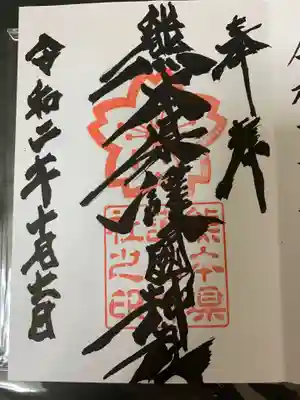 奉拝
熊本県護國神社
熊本県
護国神
社之印
令和二年十月六日